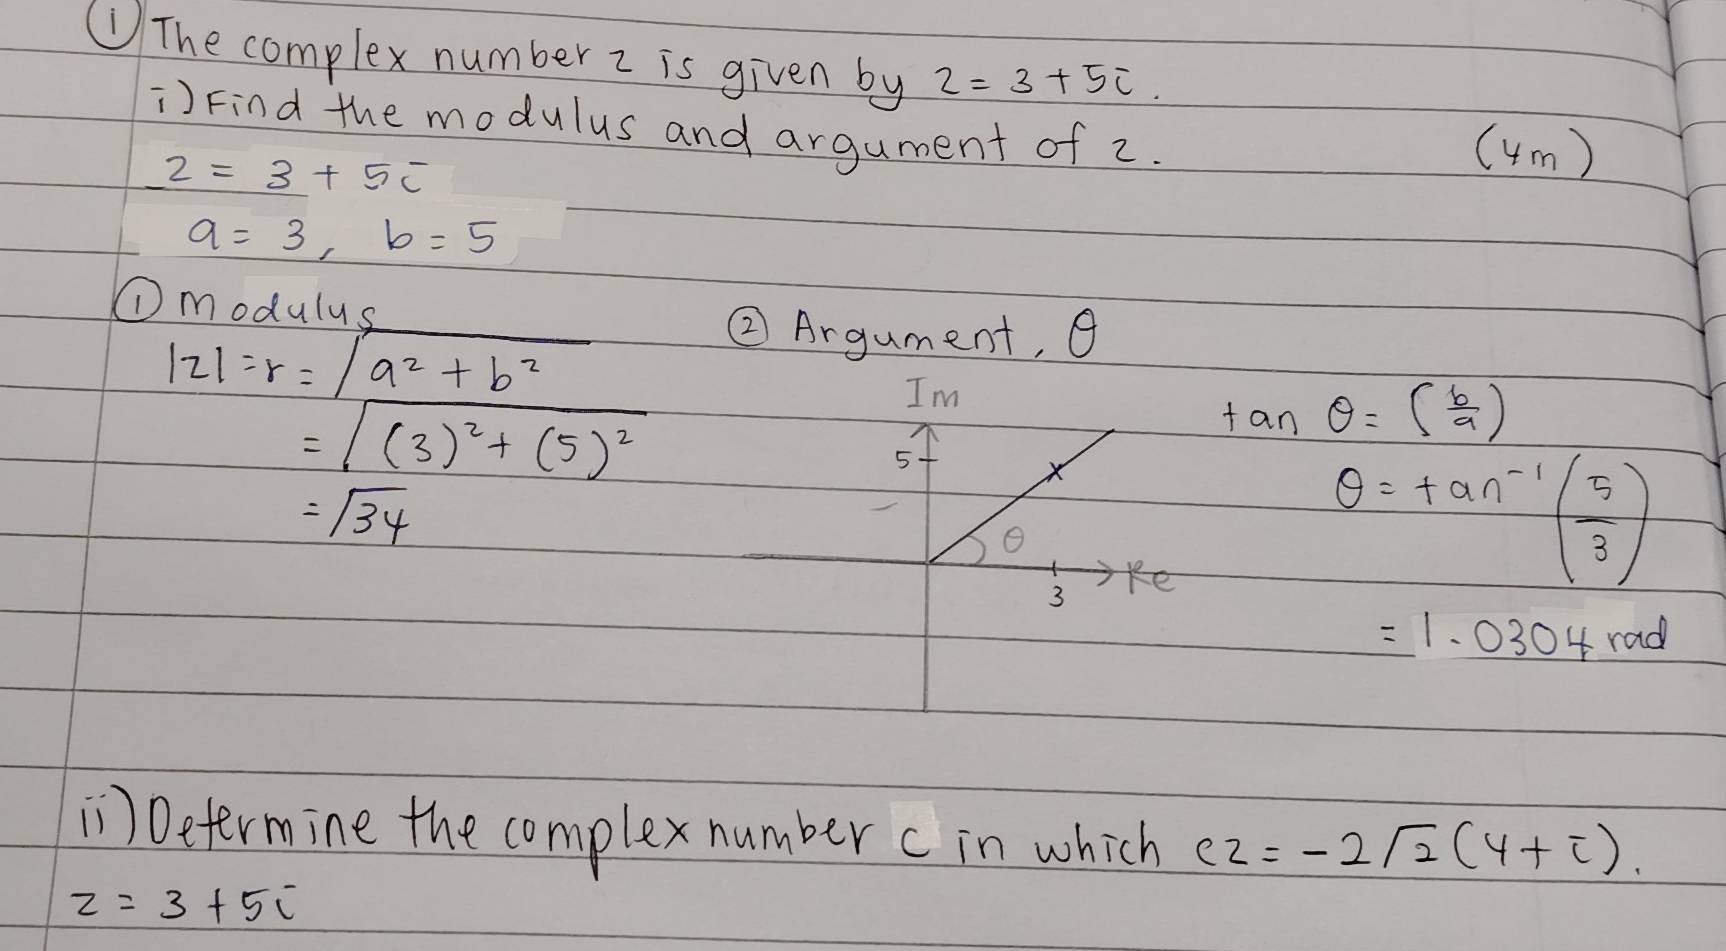 ① The complex number z is given by z = 3 + 5i.
i) Find the modulus and argument of z. (4m)
z = 3 + 5i
a = 3, b = 5
① modulus
|z| = r = √(a² + b²)
= √((3)² + (5)²)
= √34
② Argument, θ
Im
5
θ
Re
3
tan θ = (b/a)
θ = tan⁻¹ (5/3)
= 1.0304 rad
ii) Determine the complex number c in which cz = -2√2 (4 + i).
z = 3 + 5i